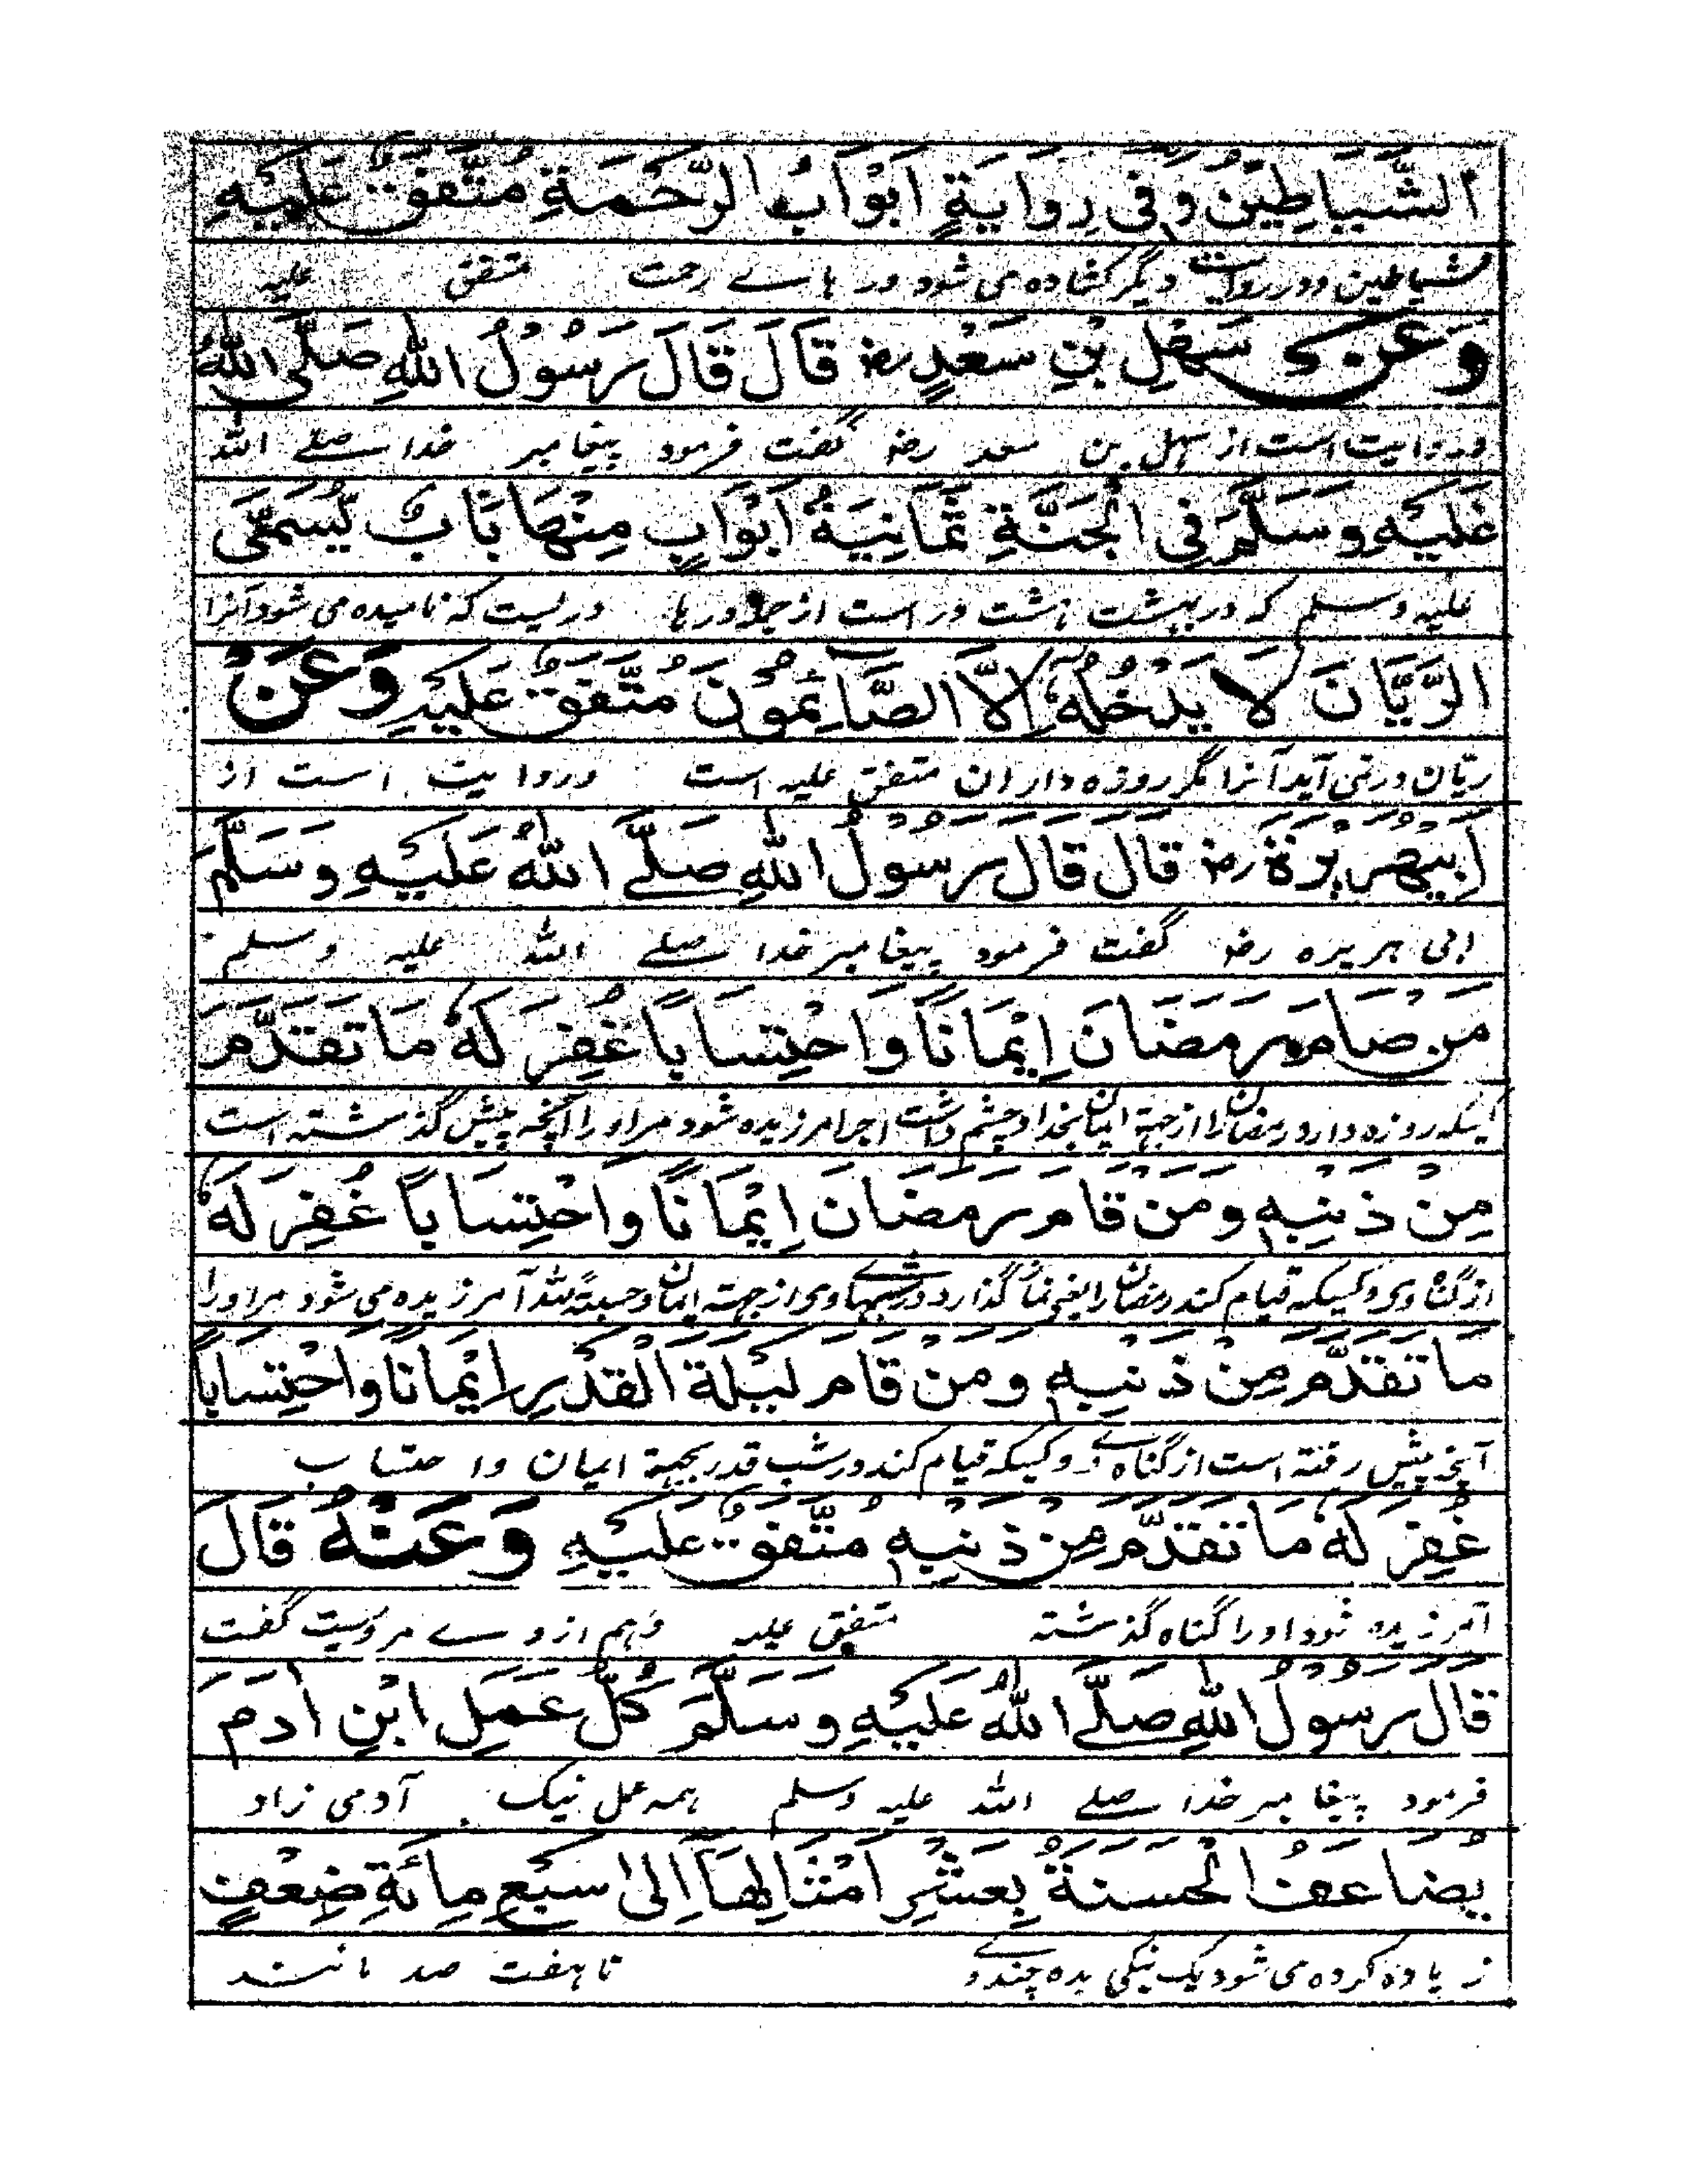 الشَّيَاطِيْنُ وَفِى رِوَايَةٍ اَبْوَابُ الرَّحْمَةِ مُتَّفَقٌ عَلَيْهِ
شیاطین ودر روایت دیگر کشاده می شود در ہاے رحمت متفق علیہ
وَعَنْ سَهْلِ بْنِ سَعْدٍ رض قَالَ قَالَ رَسُوْلُ اللهِ صَلَّى اللهُ
وروایت است از سہل بن سعد رضہ گفت فرمود پیغامبر خدا صلے اللہ
عَلَيْهِ وَسَلَّمَ فِى الْجَنَّةِ ثَمَانِيَةُ اَبْوَابٍ مِنْهَا بَابٌ يُّسَمّٰى
علیہ وسلم کہ در بہشت ہشت در است از جملہ در ہا دریست کہ نامیدہ می شود آنرا
الرَّيَّانَ لَا يَدْخُلُهٗ اِلَّا الصَّائِمُوْنَ مُتَّفَقٌ عَلَيْهِ وَعَنْ
ریّان در نمی آید آنرا مگر روزہ داران متفق علیہ است وروایت است از
اَبِىْ هُرَيْرَةَ رض قَالَ قَالَ رَسُوْلُ اللهِ صَلَّے اللهُ عَلَيْهِ وَسَلَّمَ
ابی ہریرہ رضہ گفت فرمود پیغامبر خدا صلے اللہ علیہ وسلم
مَنْ صَامَ رَمَضَانَ اِيْمَانًا وَاحْتِسَابًا غُفِرَ لَهٗ مَا تَقَدَّمَ
کسیکہ روزہ دارد رمضان را از جہتہ ایمان بخدا وچشم داشت اجر آمرزیدہ شود مر او را آنچہ پیش گذشتہ است
مِنْ ذَنْبِهٖ وَمَنْ قَامَ رَمَضَانَ اِيْمَانًا وَاحْتِسَابًا غُفِرَ لَهٗ
از گناہ وی وکسیکہ قیام کند رمضان را یعنی نماز گذارد در شبہاے وی از جہتہ ایمان وحسبتہً للہ آمرزیدہ می شود مر او را
مَا تَقَدَّمَ مِنْ ذَنْبِهٖ وَمَنْ قَامَ لَيْلَةَ الْقَدْرِ اِيْمَانًا وَاحْتِسَابًا
آنچہ پیش رفتہ است از گناہ وے وکسیکہ قیام کند در شب قدر بجہتہ ایمان واحتساب
غُفِرَ لَهٗ مَا تَقَدَّمَ مِنْ ذَنْبِهٖ مُتَّفَقٌ عَلَيْهِ وَعَنْهُ قَالَ
آمرزیدہ شود او را گناہ گذشتہ متفق علیہ وہم از وے مرویست گفت
قَالَ رَسُوْلُ اللهِ صَلَّے اللهُ عَلَيْهِ وَسَلَّمَ كُلُّ عَمَلِ ابْنِ اٰدَمَ
فرمود پیغامبر خدا صلے اللہ علیہ وسلم ہمہ عمل نیک آدمی زاد
يُضَاعَفُ الْحَسَنَةُ بِعَشْرِ اَمْثَالِهَا اِلىٰ سَبْعِ مِائَةِ ضِعْفٍ
زیادہ کردہ می شود یک نیکی بدہ چندے تا ہفت صد مانند